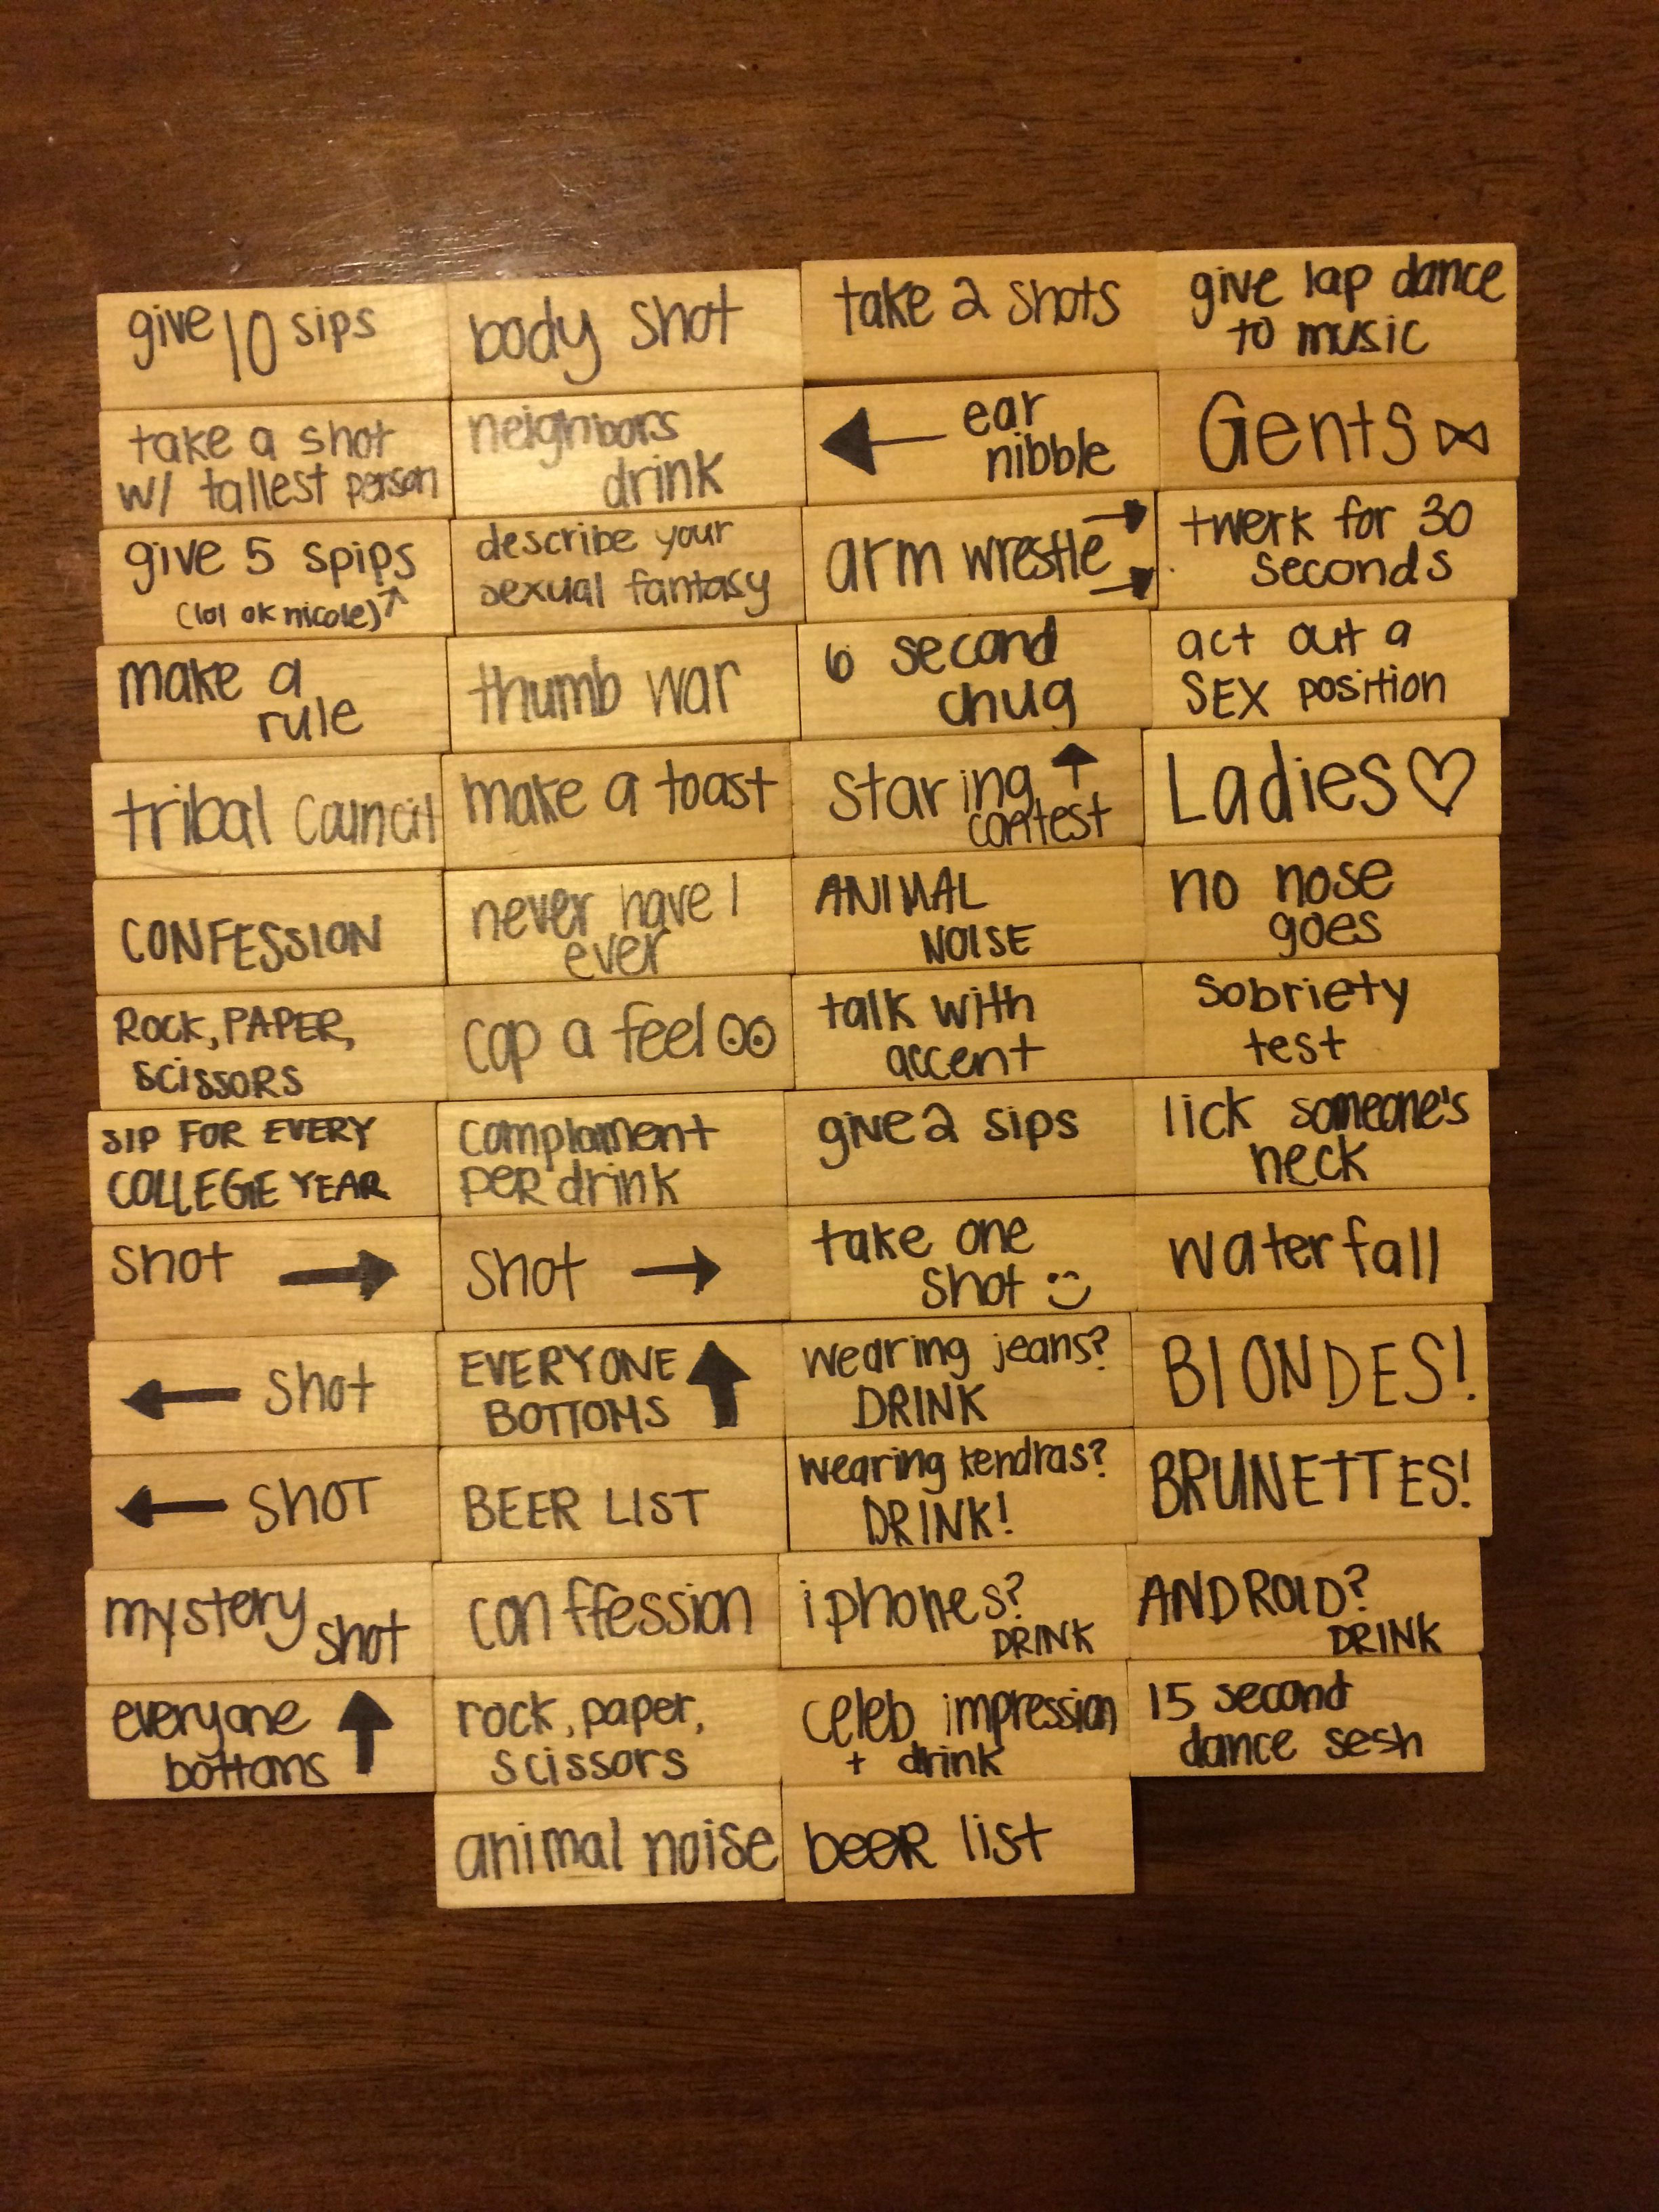 give 10 sips
body shot
take 2 shots
give lap dance
to music
take a shot
w/ tallest person
neighbors
drink
ear
nibble
Gents
give 5 spips
(lol ok nicole)
describe your
sexual fantasy
arm wrestle
twerk for 30
seconds
make a
rule
thumb war
6 second
chug
act out a
SEX position
tribal council
make a toast
staring
contest
Ladies
CONFESSION
never have I
ever
ANIMAL
NOISE
no nose
goes
ROCK, PAPER,
SCISSORS
cop a feel
talk with
accent
Sobriety
test
SIP FOR EVERY
COLLEGE YEAR
complament
per drink
give 2 sips
lick someone's
neck
shot
shot
take one
shot
waterfall
shot
EVERYONE
BOTTOMS
wearing jeans?
DRINK
BlONDES!
SHOT
BEER LIST
wearing kendras?
DRINK!
BRUNETTES!
mystery
shot
conffession
iphones?
DRINK
ANDROID?
DRINK
everyone
bottoms
rock, paper,
scissors
celeb impression
+ drink
15 second
dance sesh
animal noise
beeR list